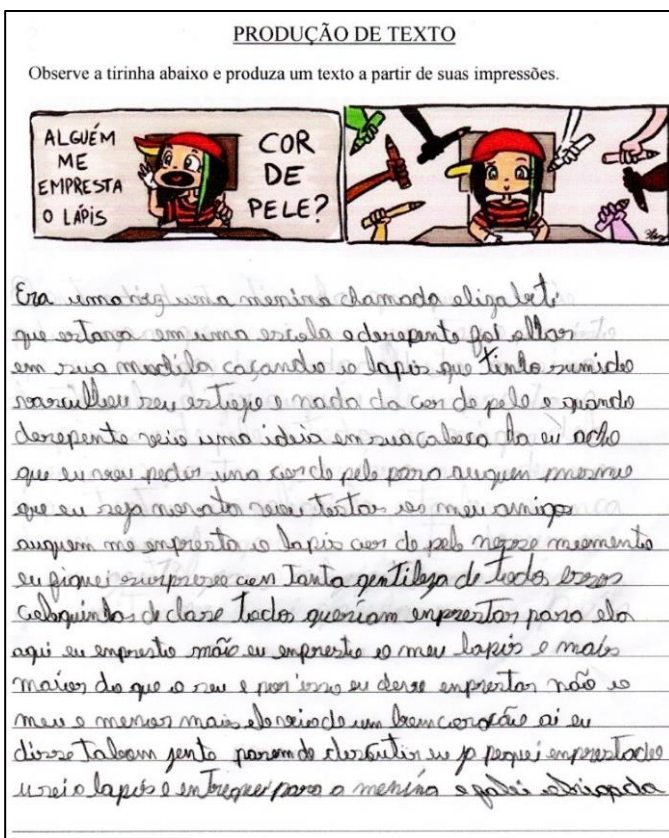 PRODUÇÃO DE TEXTO
Observe a tirinha abaixo e produza um texto a partir de suas impressões.
ALGUÉM
ME
EMPRESTA
O LÁPIS
COR
DE
PELE?
Era uma vez uma menina chamada elizabeti
que estava em uma escola e derepente foi olhar
em sua mochila caçando o lapis que tinha sumido
vasculhou seu estojo e nada da cor de pele e quando
derepente veio uma ideia em sua cabeça ha eu acho
que eu vou pedir uma cor de pele para auguen mesmo
que eu seja novata vou testar os meu amigos
auguem me enpresta o lapis cor de pele nesse momento
eu fiquei surpresa con tanta gentileza de todos esses
coleguinhas de clase todos queriam enprestar para ela
aqui eu enpresto não eu enpresto o meu lapis e mais
maior do que o seu e por isso eu devo enprestar não o
meu e menor mais de um bom coração ai eu
disse ta bom jente parem de discutir eu ja peguei enprestado
usei o lapis e entreguei para a menina e falei obrigada